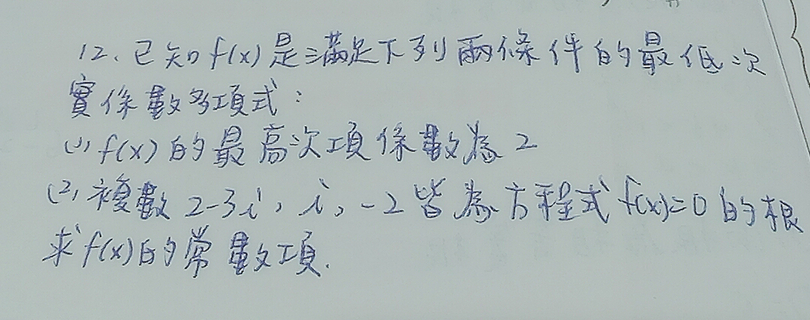 12、已知f(x)是滿足下列兩條件的最低次
實係數多項式：
(1) f(x)的最高次項係數為2
(2) 複數2-3i, i, -2皆為方程式f(x)=0的根
求f(x)的常數項.